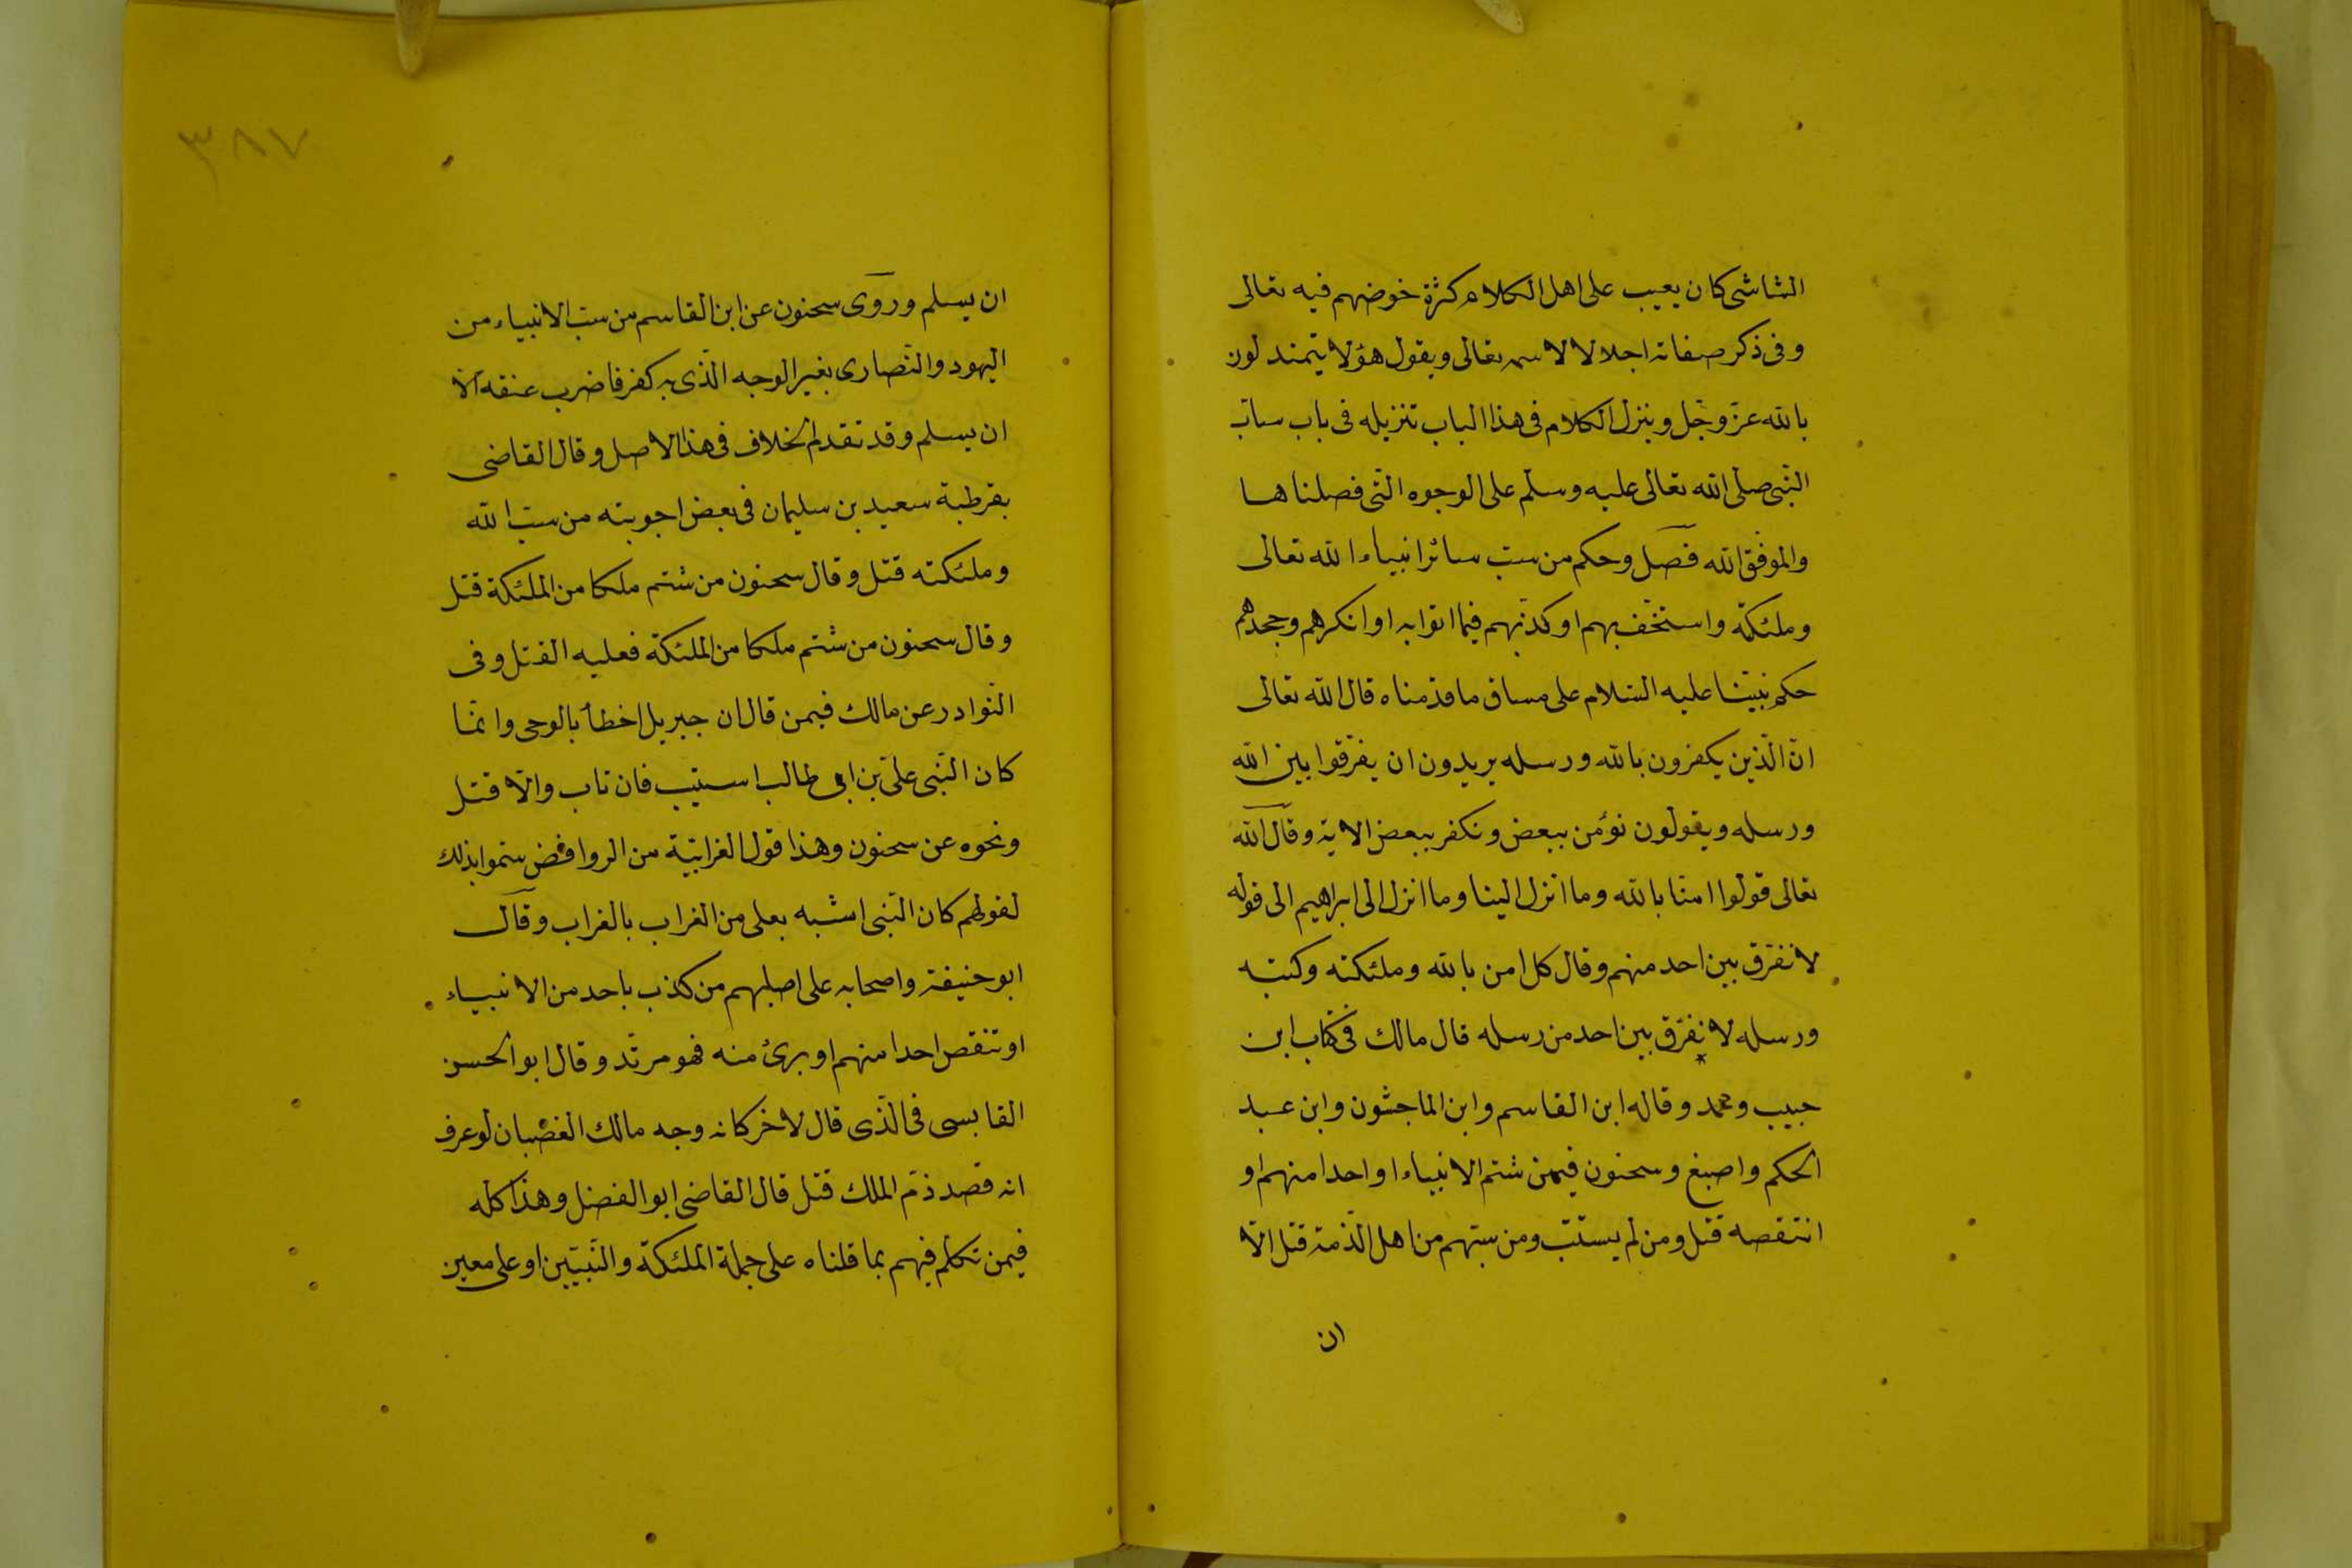 الشاشى كان يعيب على اهل الكلام كثرة خوضهم فيه تعالى
وفى ذكر صفاته اجلالا لاسمه تعالى ويقول هؤلا يتمندلون
بالله عزّ وجّل وينزل الكلام فى هذا الباب تنزيله فى باب سابّ
النّبى صلى الله تعالى عليه وسلم على الوجوه الّتى فصلناها
والموفق الله فصل وحكم من سبّ سائر انبياء الله تعالى
وملئكته واستخّف بهم او كذّبهم فيما اتوا به او انكرهم وجحدهم
حكم نبيّنا عليه السّلام على مساق ما قدّمناه قال الله تعالى
انّ الّذين يكفرون بالله ورسله يريدون ان يفرّقوا بين الله
ورسله ويقولون نؤمن ببعض ونكفر ببعض الاية وقال الله
تعالى قولوا امنّا بالله وما انزل الينا وما انزل الى ابراهيم الى قوله
لا نفرّق بين احد منهم وقال كل امن بالله وملئكته وكتبه
ورسله لا نفرّق بين احد من رسله قال مالك فى كتاب ابن
حبيب ومحمد وقاله ابن القاسم وابن الماجشون وابن عبد
الحكم واصبغ وسحنون فيمن شتم الانبياء او احدا منهم او
انتقصه قتل ومن لم يستتب ومن سبّهم من اهل الّذمة قتل الاّ
ان
٣٨٧
ان يسلم وروى سحنون عن ابن القاسم من سبّ الانبياء من
اليهود والنّصارى بغير الوجه الّذى به كفر فاضرب عنقه الاّ
ان يسلم وقد تقدم الخلاف فى هذا الاصل وقال القاضى
بقرطبة سعيد بن سليمان فى بعض اجوبته من سبّ الله
وملئكته قتل وقال سحنون من شتم ملكا من الملئكة قتل
وقال سحنون من شتم ملكا من الملئكة فعليه القتل وفى
النّوادر عن مالك فيمن قال ان جبريل اخطأ بالوحى وانّما
كان النّبى علىّ بن ابى طالب استتيب فان تاب والاّ قتل
ونحوه عن سحنون وهذا قول الغرابيّة من الروافض سمّوا بذلك
لقولهم كان النّبى اشبه بعلى من الغراب بالغراب وقال
ابو حنيفة واصحابه على اصلهم من كذب باحد من الانبياء
او تنقص احدا منهم او برئ منه فهو مرتّد وقال ابو الحسن
القابسى فى الّذى قال لاخر كانه وجه مالك الغضبان لو عرف
انه قصد ذمّ الملك قتل قال القاضى ابو الفضل وهذا كله
فيمن تكلّم فيهم بما قلناه على جملة الملئكة والنّبيّين او على معين